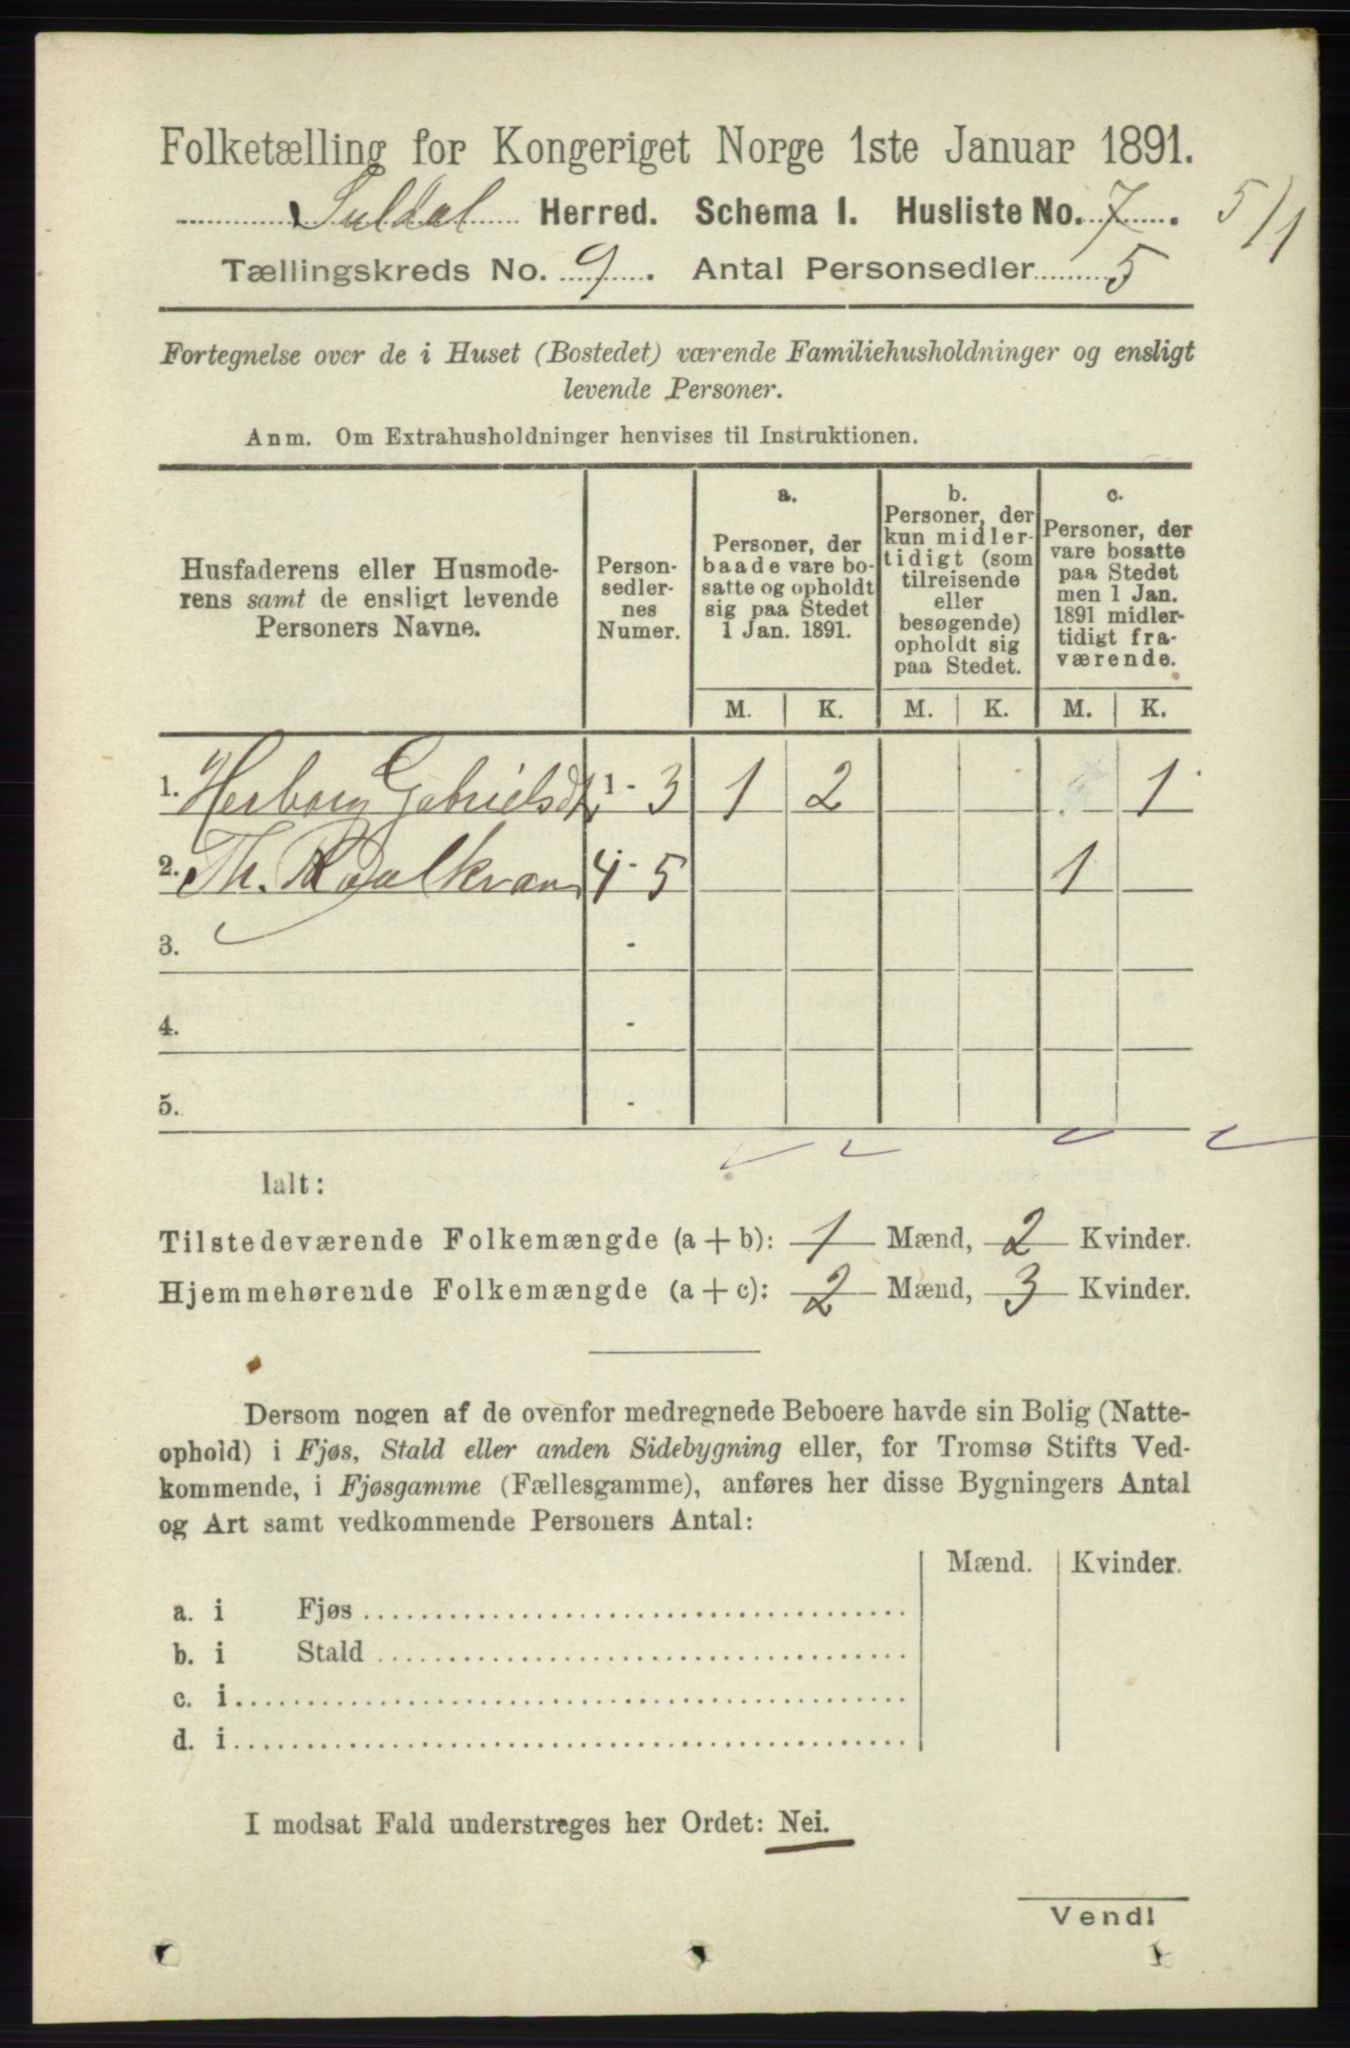 Folketælling for Kongeriget Norge 1ste Januar 1891.
Suldal Herred. Schema I. Husliste No. 7. 5/1
Tællingskreds No. 9. Antal Personsedler 5
Fortegnelse over de i Huset (Bostedet) værende Familiehusholdninger og ensligt
levende Personer.
Anm. Om Extrahusholdninger henvises til Instruktionen.
Husfaderens eller Husmode-
rens samt de ensligt levende
Personers Navne.
Person-
sedler-
nes
Numer.
a.
Personer, der
baade vare bo-
satte og opholdt
sig paa Stedet
1 Jan. 1891.
b.
Personer, der
kun midler-
tidigt (som
tilreisende
eller
besøgende)
opholdt sig
paa Stedet.
c.
Personer, der
vare bosatte
paa Stedet
men 1 Jan.
1891 midler-
tidigt fra-
værende.
M. K. M. K. M. K.
1. Herborg Gabrielsdt 1 - 3 1 2 1
2. Th. 4 - 5 1
3. -
4. -
5. -
Ialt:
Tilstedeværende Folkemængde (a + b): 1 Mænd, 2 Kvinder.
Hjemmehørende Folkemængde (a + c): 2 Mænd, 3 Kvinder.
Dersom nogen af de ovenfor medregnede Beboere havde sin Bolig (Natte-
ophold) i Fjøs, Stald eller anden Sidebygning eller, for Tromsø Stifts Ved-
kommende, i Fjøsgamme (Fællesgamme), anføres her disse Bygningers Antal
og Art samt vedkommende Personers Antal:
Mænd. Kvinder.
a. i Fjøs
b. i Stald
c. i
d. i
I modsat Fald understreges her Ordet: Nei.
Vend!